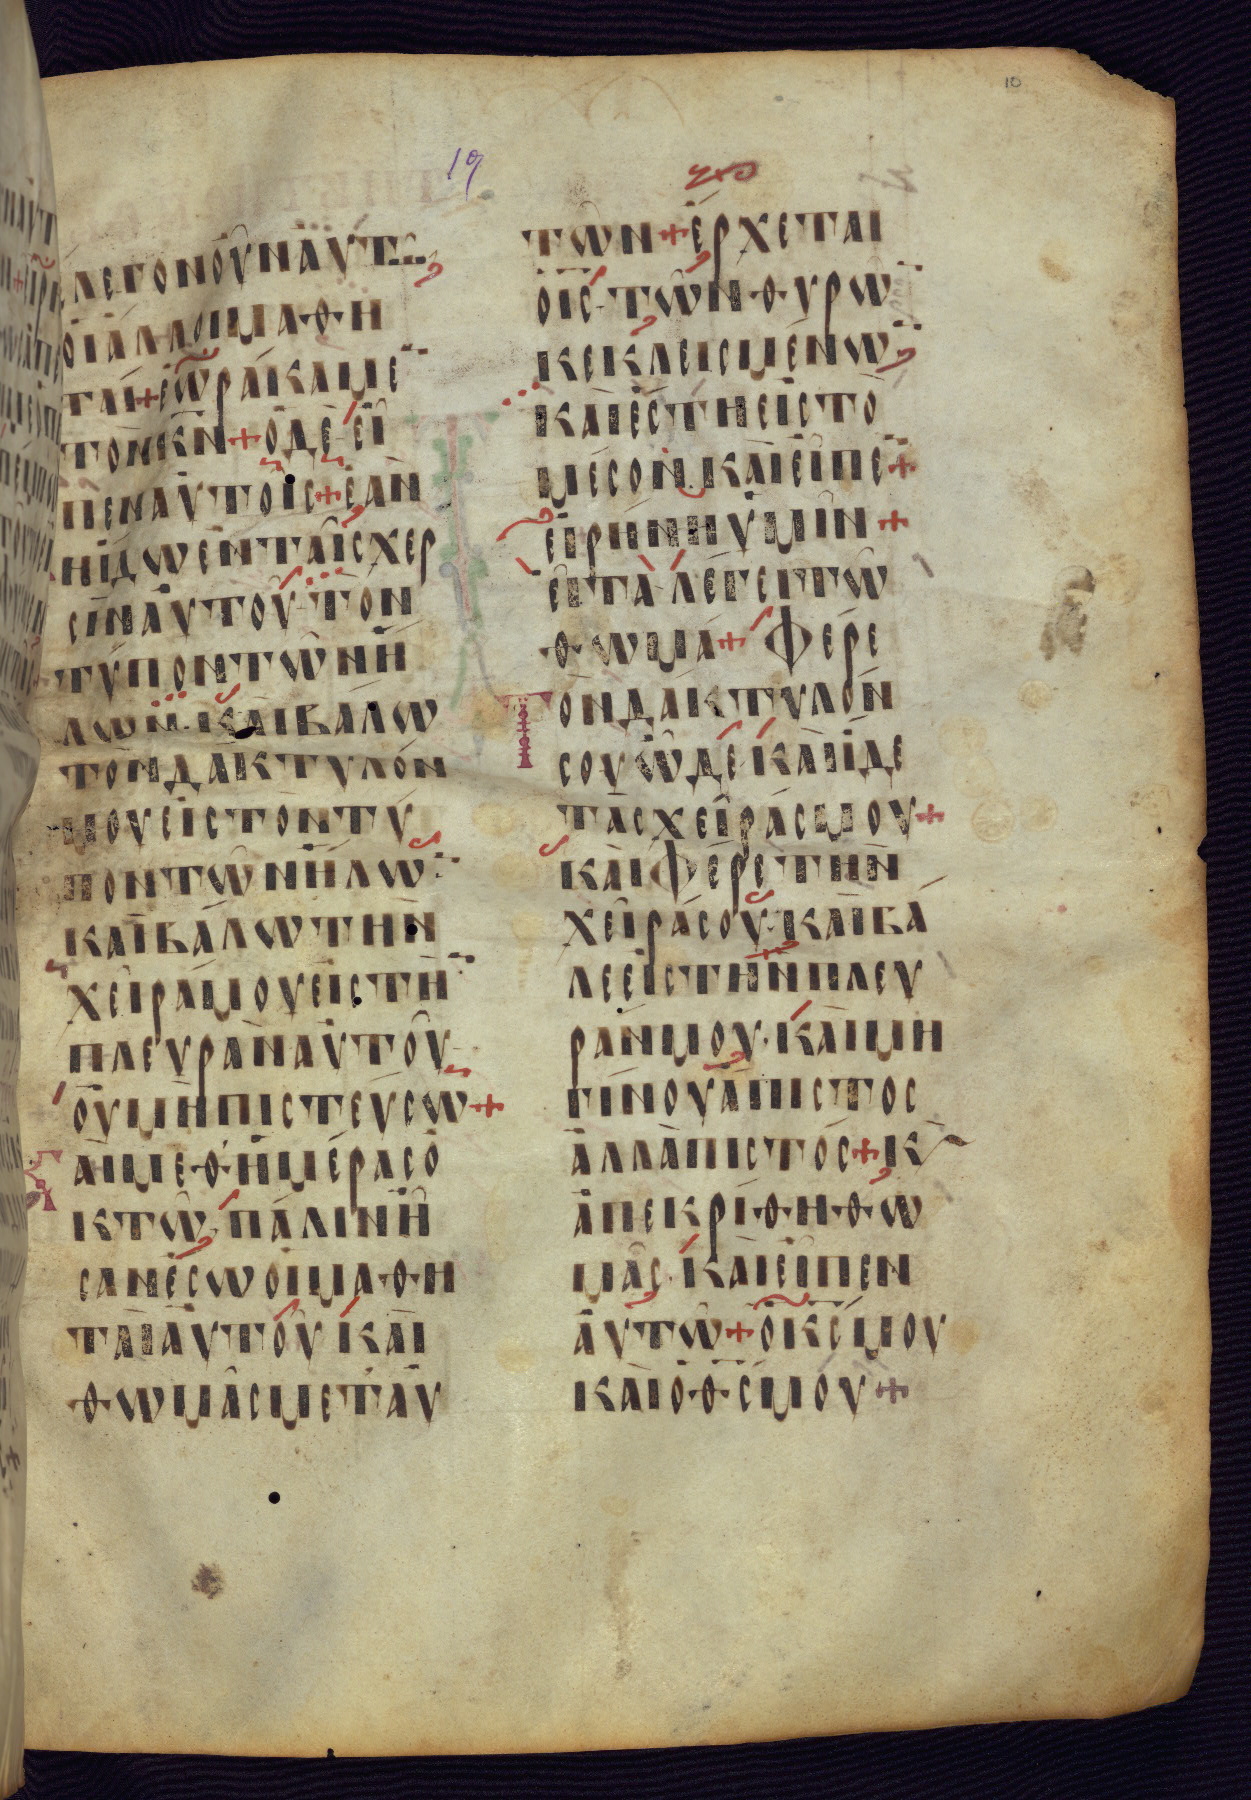 10
19
ΛΕΓΟΝΟΥ͂ΝἈΥΤ
ΟἹἈΛΛΟΙΜΑΘΗ
ΤΑΊ+ἘΩΡΆΚΑΜΕ
ΤΟΝΚΝ+ὉΔῈΕἾ
ΠΕΝΑΥΤΟΙ͂Σ+ἘᾺΝ
ΜΗΊΔΩΕΝΤΑΙ͂ΣΧΕΡ
ΣῚΝΑΥΤΟΥ͂·ΤΟΝ
ΤΎΠΟΝΤΩ͂ΝΉ
ΛΩΝ·ΚΑῚΒΑΛΩ
ΤΟΝΔΆΚΤΥΛΌΝ
ΜΟΥΕἸΣΤΟΝΤΎ
ΠΟΝΤΩ͂ΝΉΛΩ
ΚΑῚΒΆΛΩΤΗΝ
ΧΕΙ͂ΡΆΜΟΥΕἸΣΤΗ
ΠΛΕΥΡᾺΝΑΥΤΟΥ͂·
ΟΥΜΗΠΙΣΤΕΎΣΩ+
ΚΑῚΜΕΘ'ἩΜΈΡΑΣὈ
ΚΤΩ͂·ΠΆΛΙΝἮ
ΣΑΝἜΣΩΟἹΜΑΘΗ
ΤΑῚΑΥΤΟΥ͂ΚΑῚ
ΘΩΜΑ͂ΣΜΕΤ'ΑΥ
ΤΩ͂Ν+ἜΡΧΕΤΑΙ
ΟΙΣ·ΤΩ͂ΝΘΥΡΩ
ΚΕΚΛΕΙΣΜΈΝΩ
ΚΑῚἜΣΤΗΕἸΣΤῸ
ΜΈΣΟΝ·ΚΑῚΕἾΠΕ+
ΕἸΡΉΝΗΥΜΙ͂Ν+
ΕἾΤΑ·ΛΈΓΕΙΤΩ
ΘΩΜΑ͂+ΦΈΡΕ
ΤΟΝΔΆΚΤΥΛΌΝ
ΣΟΥὯΔΕ·ΚΑῚΊΔΕ
ΤᾺΣΧΕΙ͂ΡΆΣΜΟΥ+
ΚΑῚΦΈΡΕΤΗΝ
ΧΕΙ͂ΡΆΣΟΥ·ΚΑῚΒΆ
ΛΕΕἸΣΤΗΝΠΛΕΥ
ΡΆΝΜΟΥ·ΚΑῚΜΗ
ΓΊΝΟΥἌΠΙΣΤΟΣ
ἈΛΛᾺΠΙΣΤΌΣ+Κ
ἈΠΕΚΡΊΘΗΘΩ
ΜΑ͂Σ·ΚΑῚΕἾΠΕΝ
ΑΥΤΩ͂+ὉΚΣΜΟΥ
ΚΑῚὉΘΣΜΟΥ+